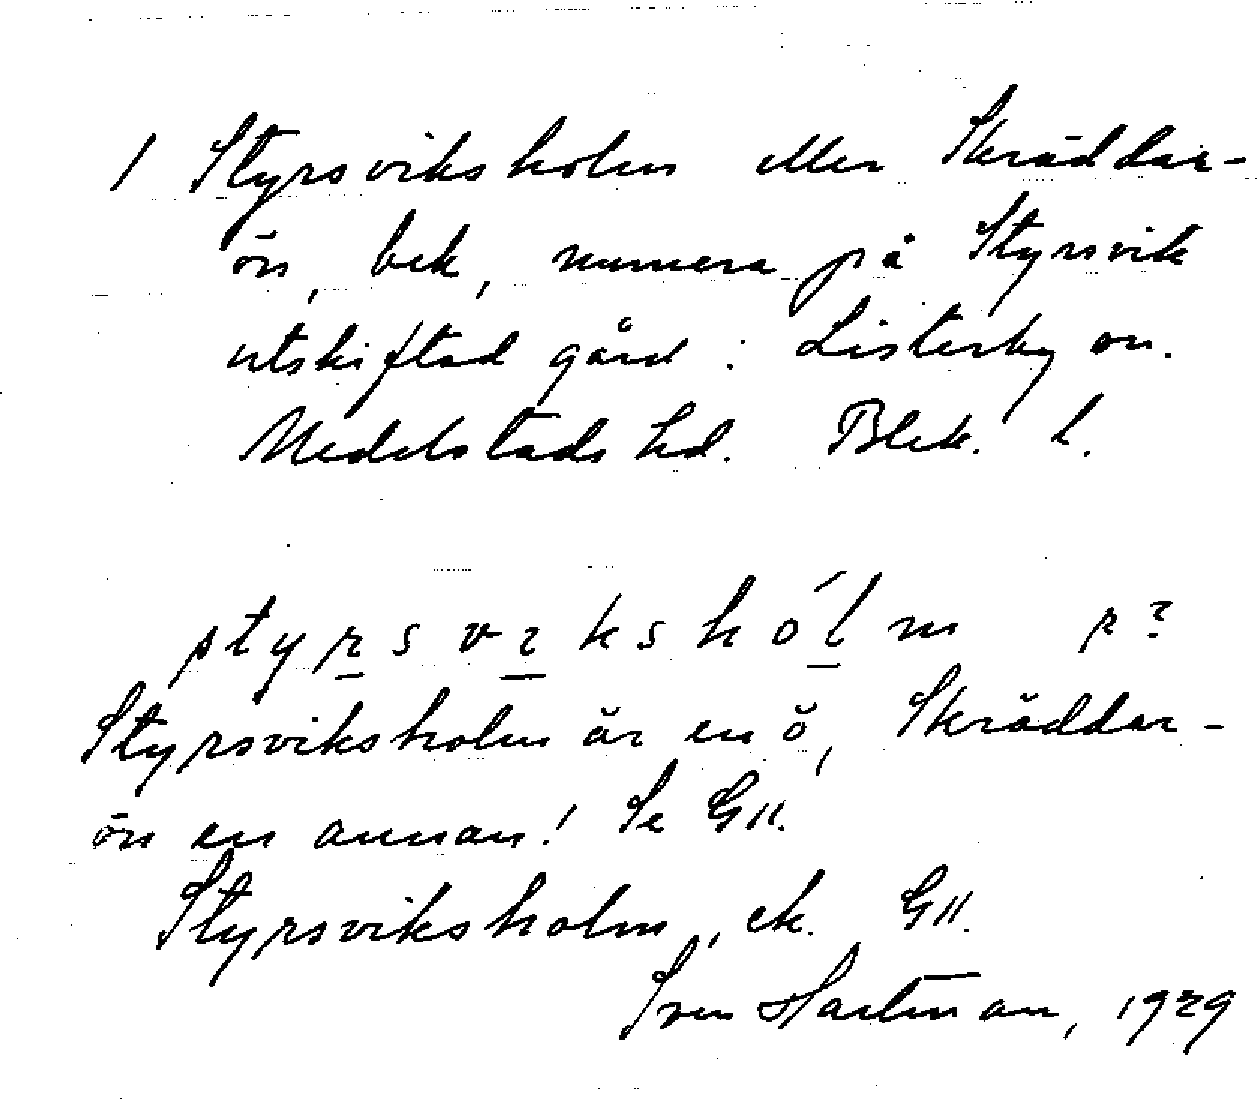 1 Styrsviksholm eller Skräddar-
ön, bek, numera på Styrsvik
utskiftad gård i Listerby sn.
Medelstads hd. Blek. l.
Styrsviksholm är en ö, Skräddar-
ön en annan! Se GK.
Styrsviksholm, ek. GK.
Sven Hartman, 1929